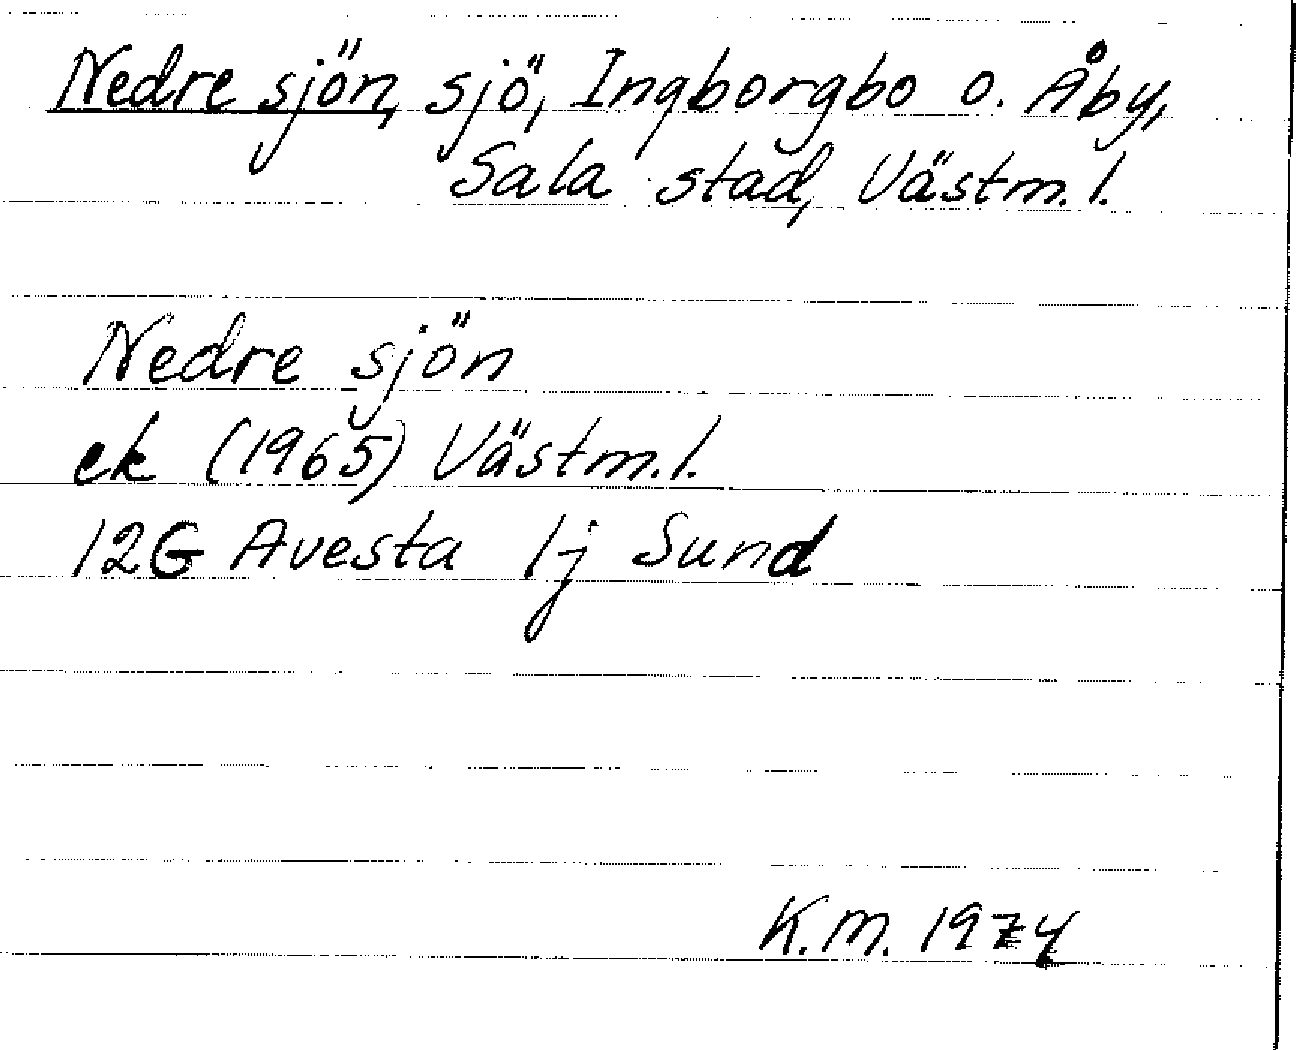 Nedre sjön, sjö, Ingborgbo o. Åby,
Sala stad, Västm. l.
Nedre sjön
ek (1965) Västm. l.
12G Avesta 1j Sund
K.M. 1974